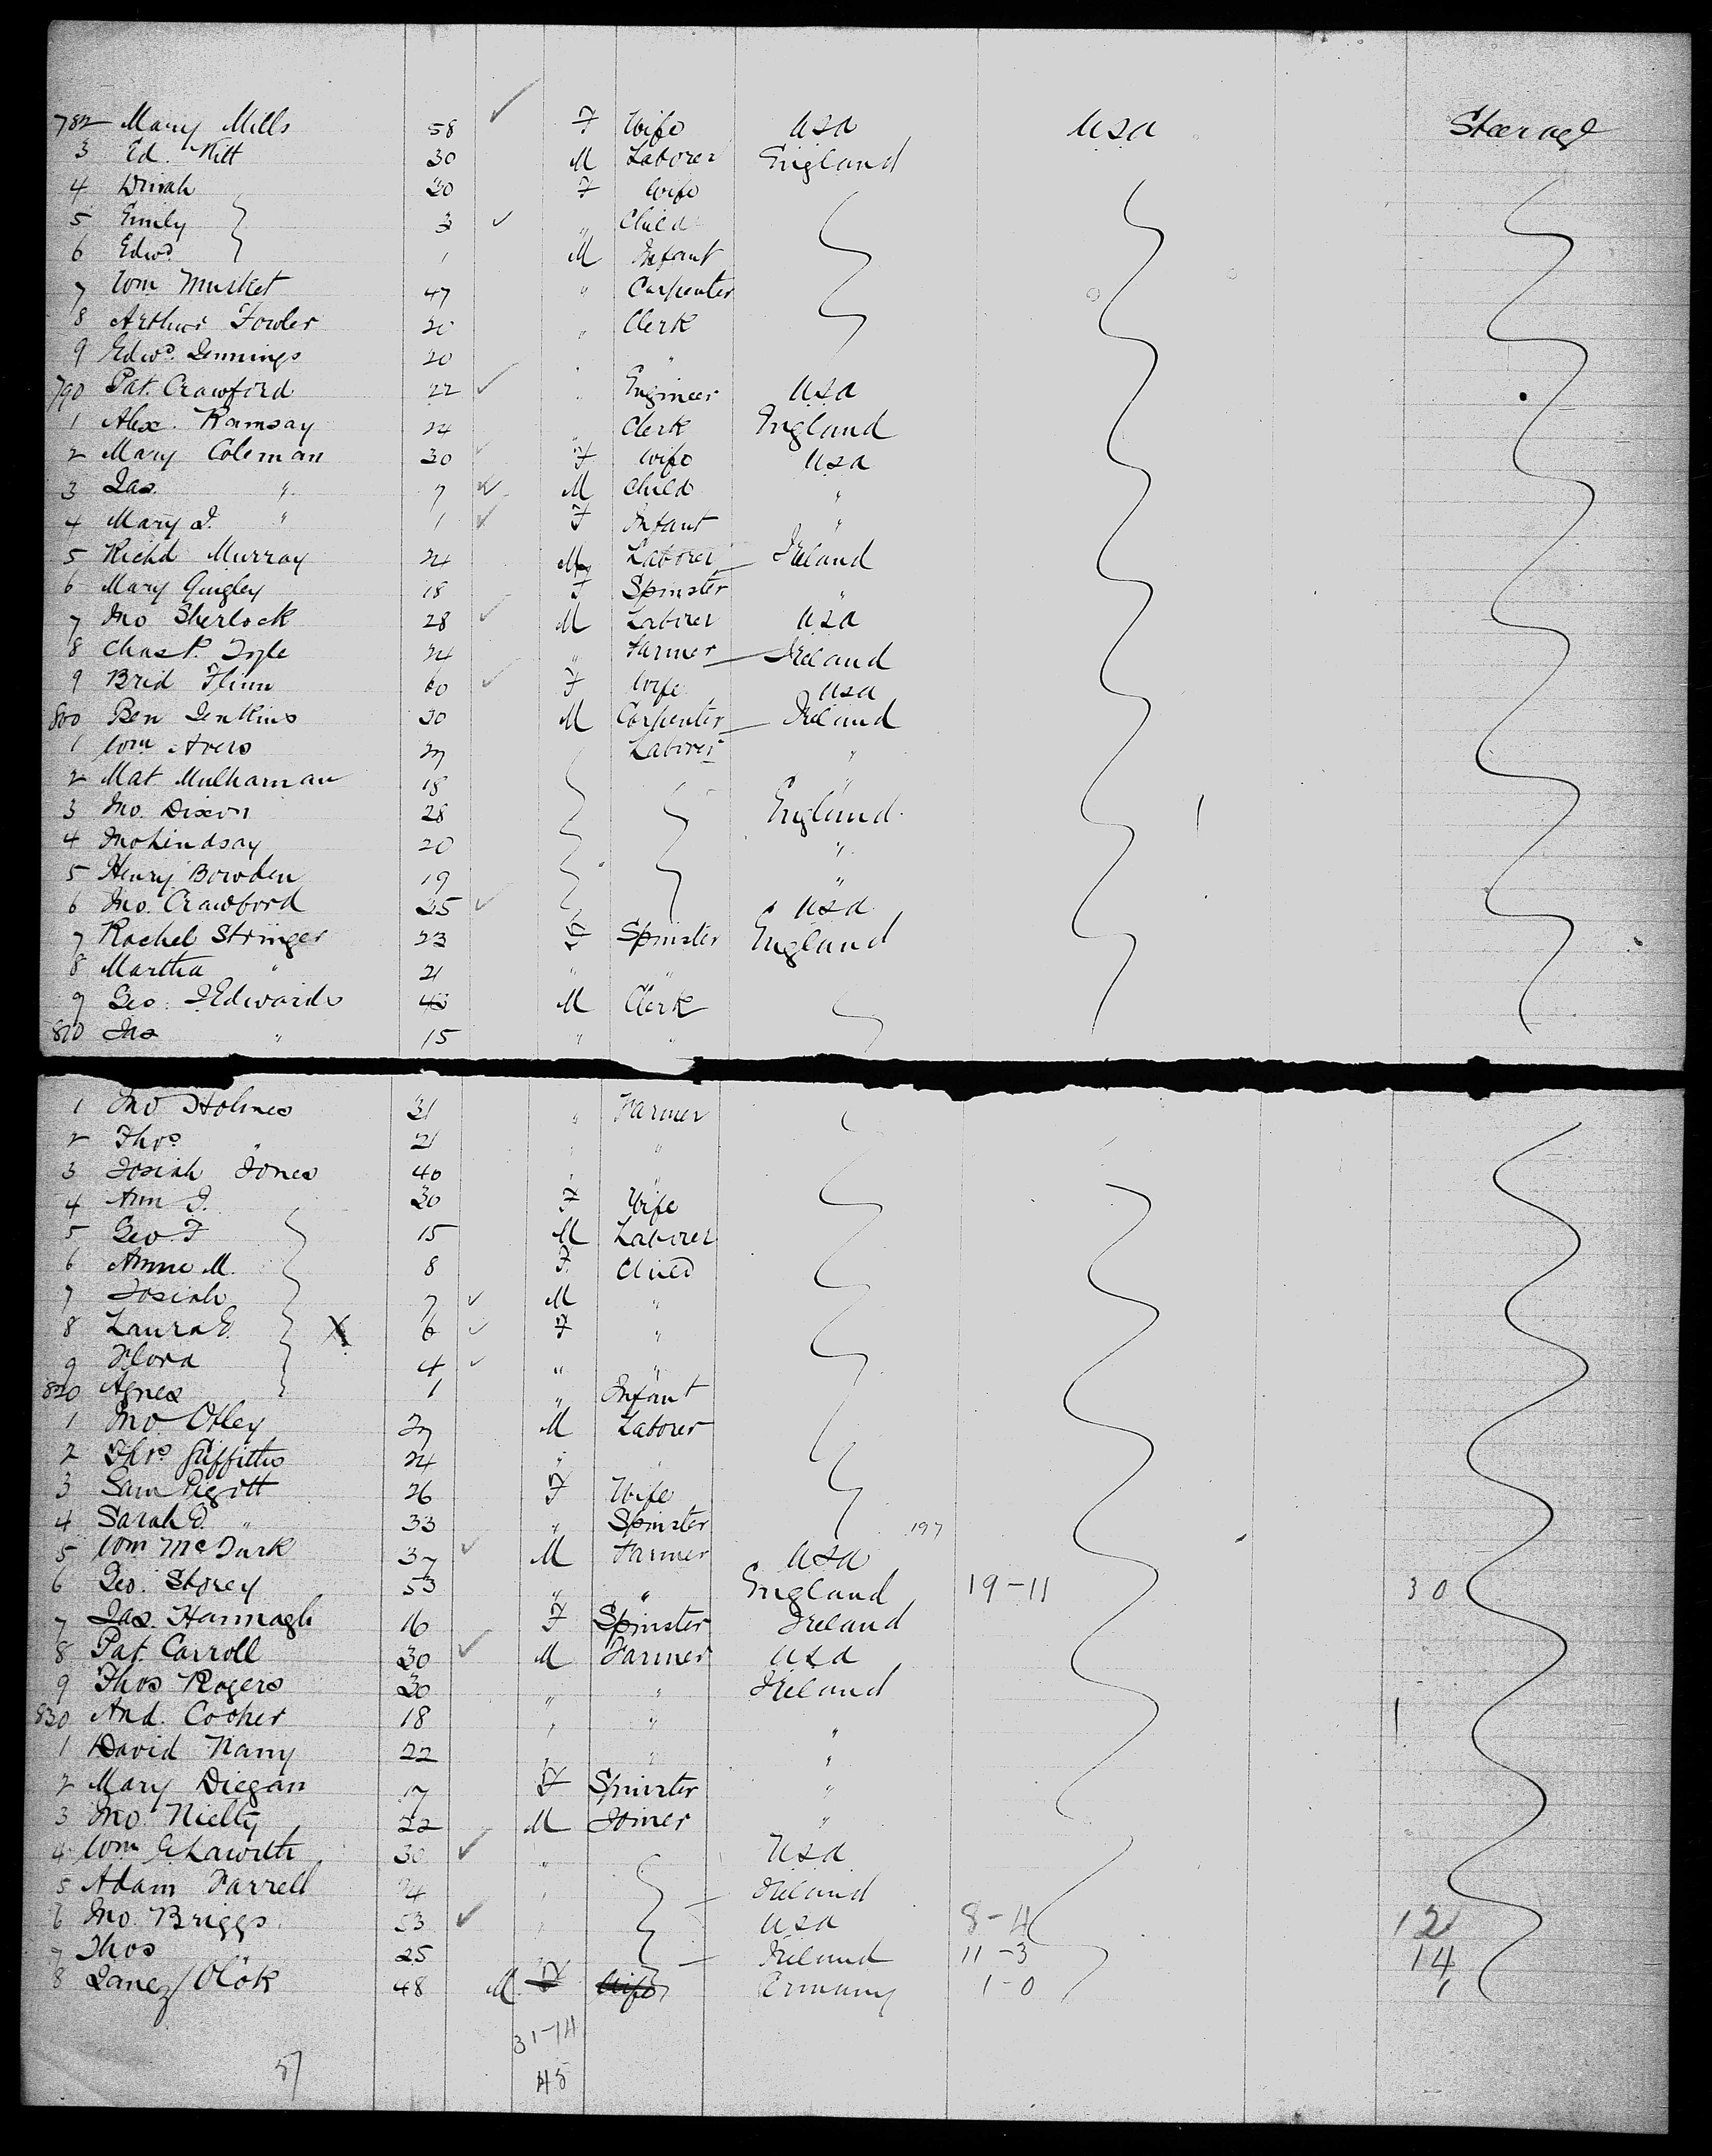 782 Mary Mills 58 F Wife USA USA Steerage
3 Ed. Kitt 30 M Laborer England
4 Dinah 30 F Wife
5 Emily 3 " Child
6 Edwd 1 M Infant
7 Wm Musket 47 " Carpenter
8 Arthur Fowler 20 " Clerk
9 Edwd. Jennings 20 " "
790 Pat. Crawford 22 " Engineer USA
1 Alex. Ramsay 24 " Clerk England
2 Mary Coleman 30 F Wife USA
3 Jas. " 7 M Child "
4 Mary J. " 1 F Infant "
5 Richd Murray 24 M Laborer Ireland
6 Mary Quigley 18 F Spinster "
7 Jno Sherlock 28 M Laborer USA
8 Chas P. 24 " Farmer Ireland
9 Brid Flinn 60 F Wife USA
800 Ben Jenkins 30 M Carpenter Ireland
1 Wm 27 Laborer "
2 Mat Mulharnan 18 "
3 Jno. Dixon 28 England
4 Jno Lindsay 20 "
5 Henry Bowden 19 "
6 Jno. Crawford 35 USA
7 Rachel Stringer 23 F Spinster England
8 Martha " 21 " "
9 Geo. J Edwards 43 M Clerk
810 Jas " 15 " "
1 Jno Holmes 31 " Farmer
2 Thos " 21 " "
3 Josiah Jones 40 " "
4 Ann J. 30 F Wife
5 Geo. F 15 M Laborer
6 Annie M. 8 F. Child
7 Josiah 7 M "
8 Laura E. X 6 F "
9 Flora 4 " "
820 Agnes 1 " Infant
1 Jno Otley 27 M Laborer
2 Thos Griffiths 24 " "
3 Sam Pigott 26 F Wife
4 Sarah E. " 33 " Spinster 197
5 Wm McTurk 37 M Farmer USA
6 Geo. Storey 53 " " England 19-11 30
7 Jas. Hannagh 16 F Spinster Ireland
8 Pat. Carroll 30 M Farmer USA
9 Thos Rogers 30 " " Ireland
830 And. Cooher 18 " " "
1 David Nany 22 " " "
2 Mary Diegan 17 F Spinster "
3 Jno. Nielty 22 M Joiner "
4 Wm 30 " USA
5 Adam Farrell 24 " Ireland
6 Jno. Briggs 53 " USA 8-4 12
7 Thos " 25 Ireland 11-3 14
8 Olök 48 M F Wife Germany 1-0 1
31-14
57 45